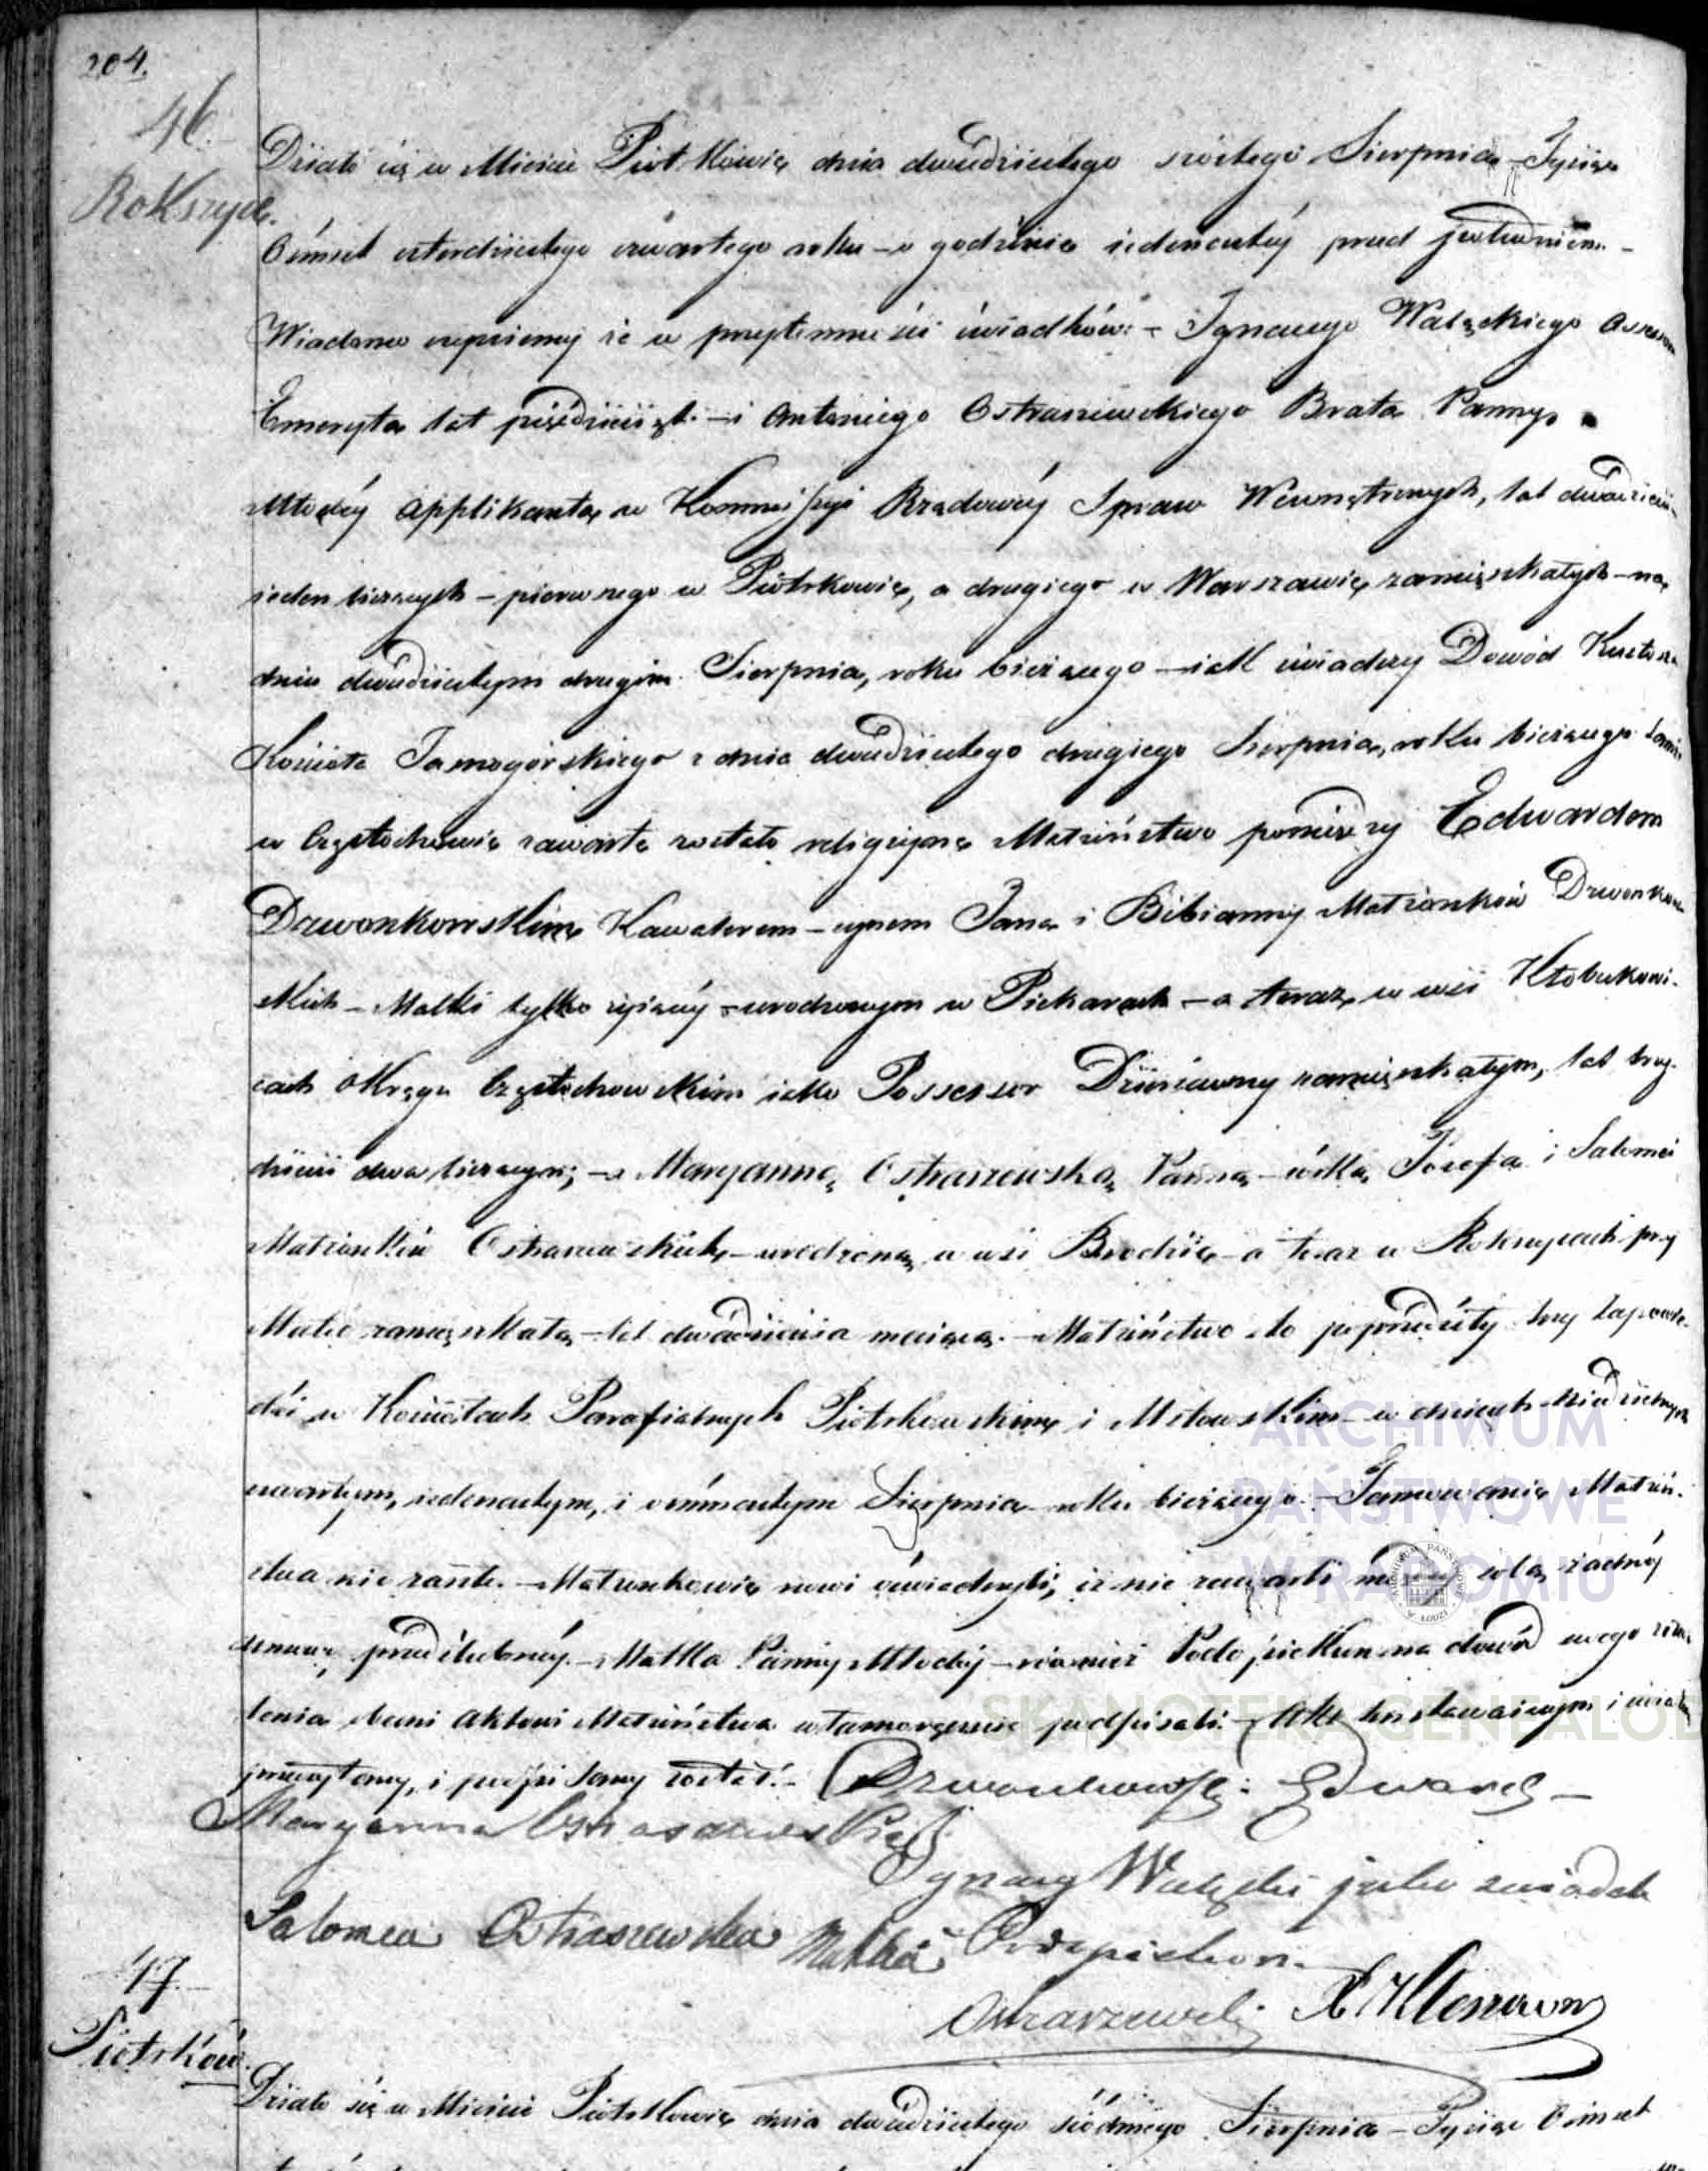 204.
46.
Rokszyce.
Działo się w Mieście Piotrkowie dnia dwudziestego szóstego Sierpnia – Tysiąc
Ośmset czterdziestego czwartego roku – o godzinie iedenastéj przed południem. –
Wiadomo czyniemy że w przytomności świadków: – Ignacego Walęckiego Assessora
Emeryta lat pięśdziesiąt. – i Antoniego Ostraszewskiego Brata Panny
Młodéj Applikanta w Kommissyi Rządowéj Spraw Wewnętrznych, lat dwadzieścia
ieden liczących – pierwszego w Piotrkowie, a drugiego w Warszawie zamięszkałych – na
dniu dwudziestym drugim Sierpnia, roku bieżącego – iak świadczy Dowód Kustosza
Kościoła Jasnogórskiego z dnia dwudziestego drugiego Sierpnia, roku bieżącego
w Częstochowie zawarte zostało religijne Małżeństwo pomiędzy Edwardem
Dzwonkowskim Kawalerem – synem Jana i Bibianny Małżonków Dzwonkow
skich – Matki tylko żyiącéj – urodzonym w Piekarach – a teraz we wsi Kłobukowi-
cach Okręgu Częstochowskim iako Possessor Dzierżawny zamięszkałym, lat trzy-
dzieści dwa liczącym; – a Maryanną Ostraszewską Panną – córką Józefa i Salomei
Małżonków Ostraszewskich – urodzoną w wsi Brodzie – a teraz w Rokszycach przy
Matce zamięszkałą – lat dwadzieścia maiącą. – Małżeństwo to poprzedziły trzy Zapowie-
dzi w Kościołach Parafialnych Piotrkowskim i Mstowskim – w dniach Niedzielnych
czwartym, iedenastym, i ośmnastym Sierpnia roku bieżącego. – Tamowanie Małżeń-
stwa nie zaszło. – Małżonkowie nowi oświadczyli, iż nie zawarli między sobą żadnéj
umowy przedślubnéj. – Matka Panny Młodéj – również Podopiekun na dowód swego zezwo
lenia Akt ten stawaiącym i świadkom
przeczytany, i podpisany został. – Dzwonkowski Edward –
Maryanna Ostraszewska
Ignacy Walęcki jako świadek
Salomea Ostraszewska Matka Podopiekun
Ostraszewski
47.
Piotrków.
Działo się w Mieście Piotrkowie dnia dwudziestego siódmego Sierpnia – Tysiąc Ośmset
ARCHIWUM
PAŃSTWOWE
W RADOMIU
SKANOTEKA GENEALOD